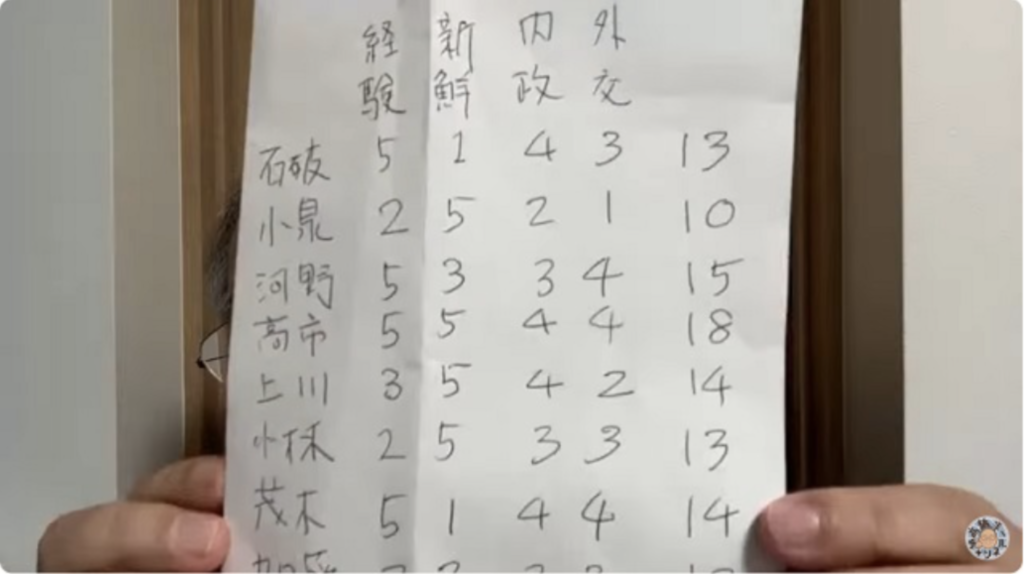 経験 新鮮 内政 外交
石破 5 1 4 3 13
小泉 2 5 2 1 10
河野 5 3 3 4 15
高市 5 5 4 4 18
上川 3 5 4 2 14
小林 2 5 3 3 13
茂木 5 1 4 4 14